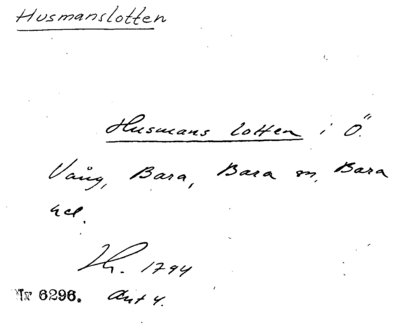 Husmanslotten
Husmans lotten i Ö.
Vång, Bara, Bara sn, Bara
hd.
1794
Nr 6296. Akt 4.